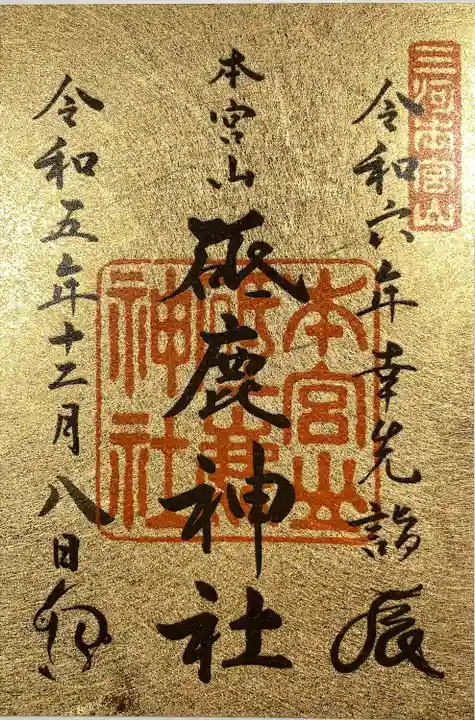 三河本宮山
令和六年幸先詣 辰
本宮山
砥鹿神社
本宮山
砥鹿
神社
令和五年十二月八日 卯